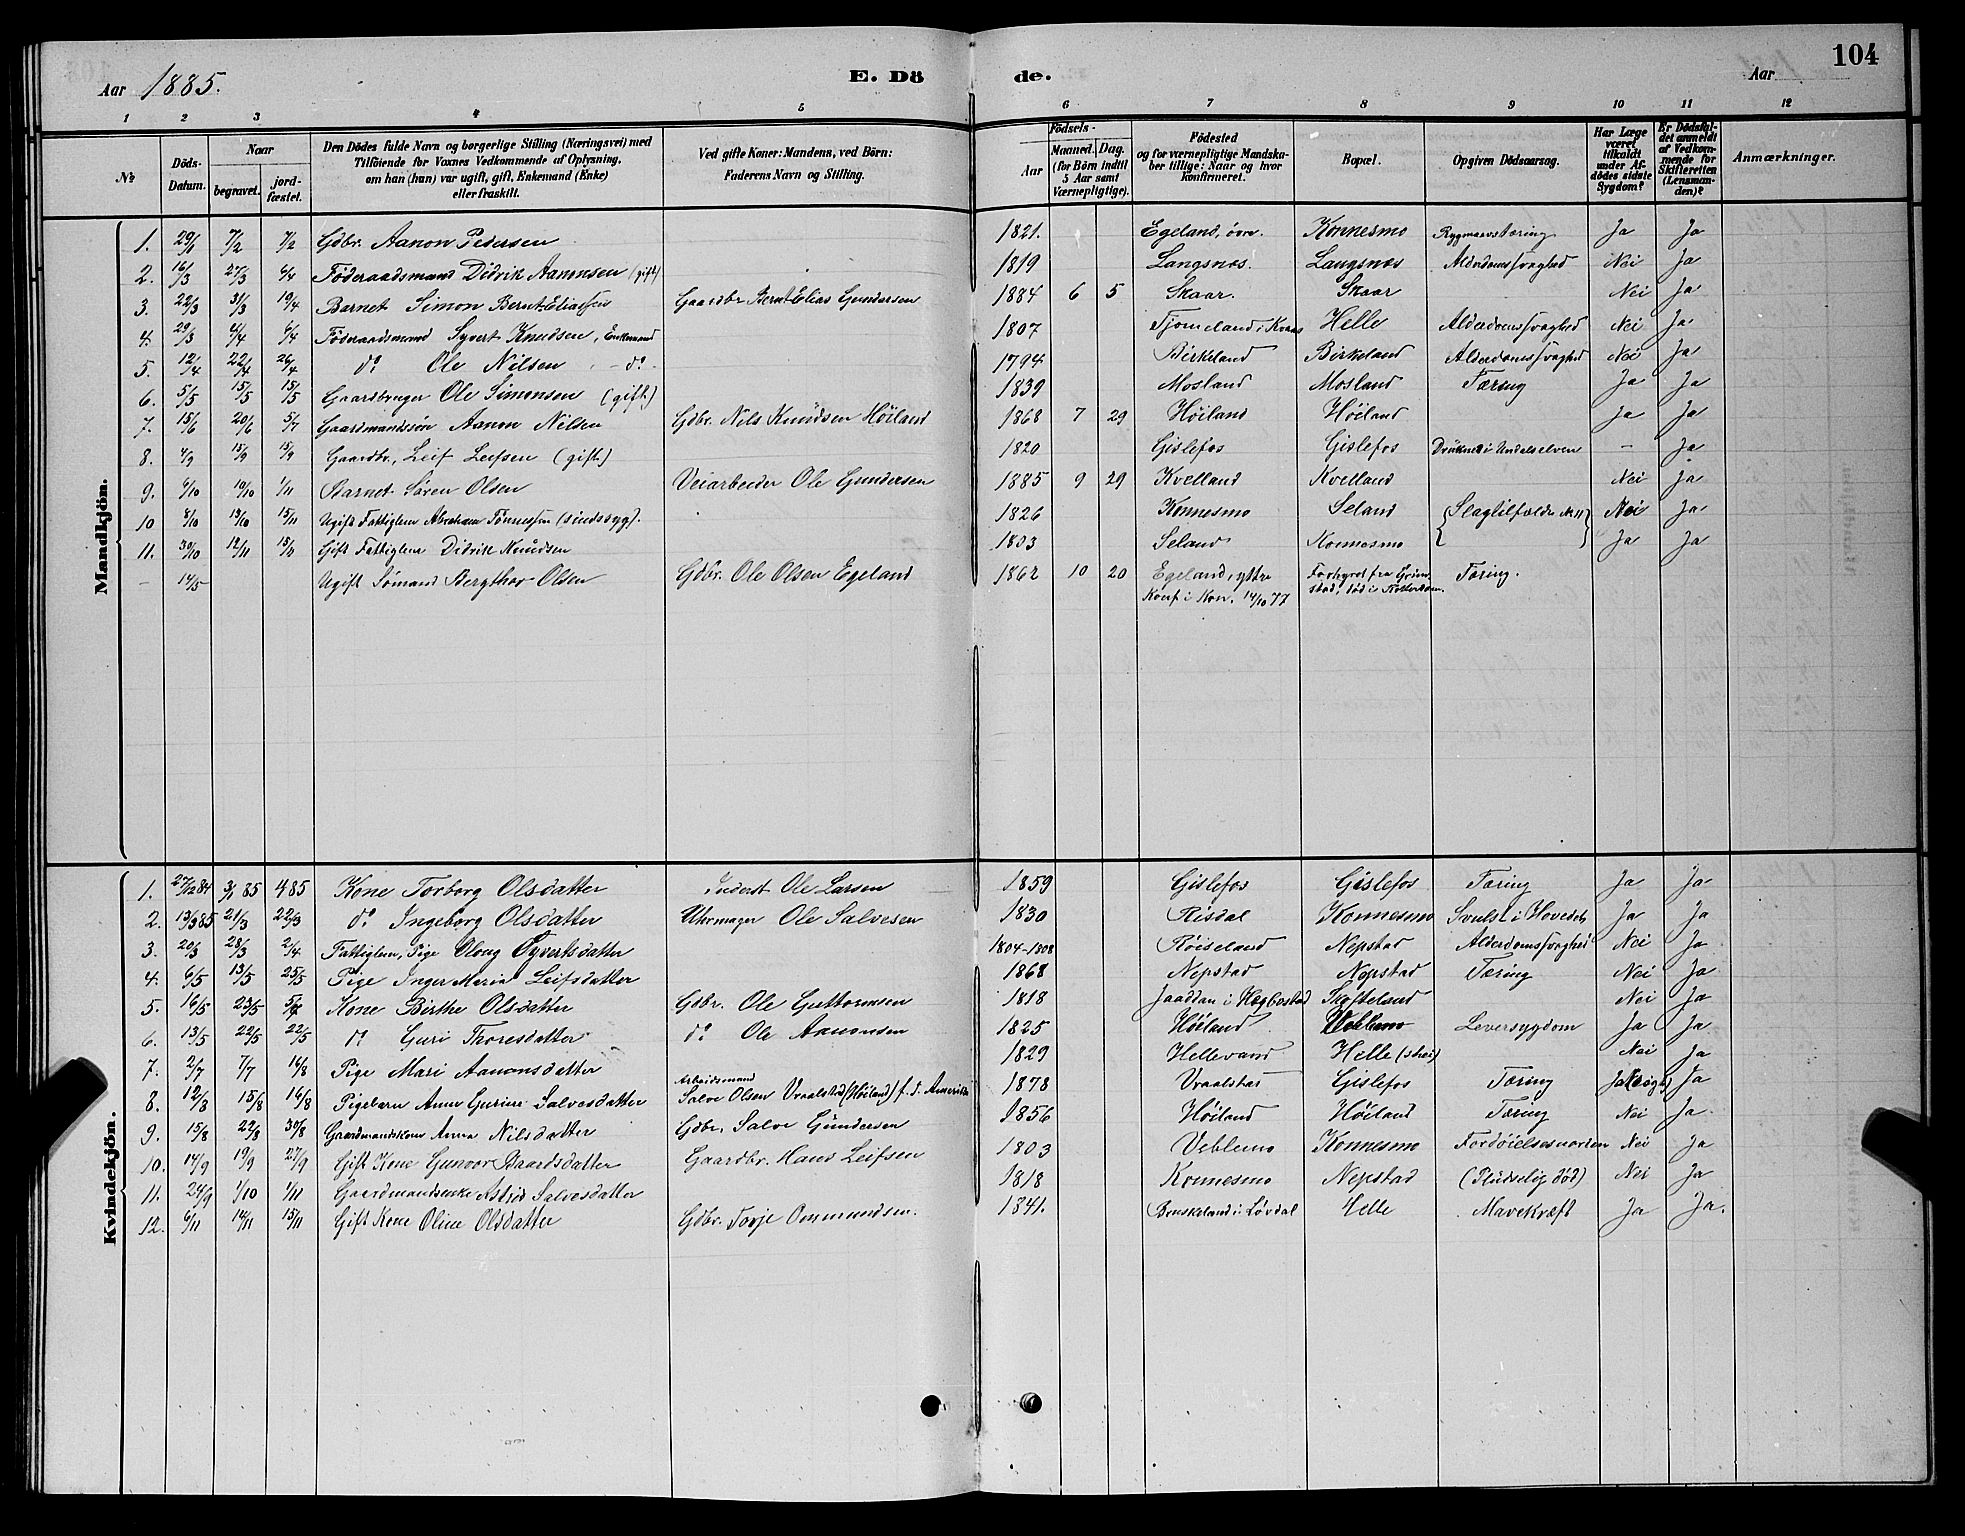 Aar 1885. E. Dö de. Aar 104
1 2 3 4 5 6 7 8 9 10 11 12
No
Döds-Datum.
Naar
begravet.
jord-fæstet.
Den Dödes fulde Navn og borgerlige Stilling (Næringsvei) med
Tilföiende for Voxnes Vedkommende af Oplysning,
om han (hun) var ugift, gift, Enkemand (Enke)
eller fraskilt.
Ved gifte Koner: Mandens, ved Börn:
Faderens Navn og Stilling.
Födsels-
Aar
Maaned. Dag.
(for Börn indtil
5 Aar samt
Værnepligtige).
Födested
og for værnepligtige Mandska-
ber tillige: Naar og hvor
konfirmeret.
Bopæl.
Opgiven Dödsaarsag.
Har Læge
været
tilkaldt
under Af-
dödes sidste
Sygdom?
Er Dödsfal-
det anmeldt
af Vedkom-
mende for
Skifteretten
(Lensman-
den)?
Anmærkninger.
Mandkjön.
1. 29/1 7/2 7/2 Gdbr. Aanon Pedersen 1821. Egeland, øvre. Konnesmo Rygmarvstæring Ja Ja
2. 16/3 27/3 6/4 Føderaadsmand Didrik Aanonsen (gift) 1819 Langsnæs. Langsnæs Alderdomssvaghed Nei Ja
3. 22/3 31/3 19/4 Barnet Simon Bernt Eliassen Gaardbr Bernt Elias Gundersen 1884 6 5 Skaar. Skaar Nei Ja
4. 29/3 4/4 6/4 Føderaadsmand Syvert Knudsen, Enkemand 1807 Tjomeland i Kvaas Helle Alderdomssvaghed Nei Ja
5. 12/4 22/4 26/4 do Ole Nilsen - do - 1794 Birkeland Birkeland Alderdomssvaghed Nei Ja
6. 5/5 15/5 15/5 Gaardbruger Ole Simonsen (gift) 1839 Mosland Mosland Tæring Ja Ja
7. 15/6 20/6 5/7 Gaardmandssøn Aanon Nilsen Gdbr. Nils Knudsen Høiland 1868 7 29 Høiland Høiland Ja Ja
8. 4/9 15/9 15/9 Gaardbr., Leif Leifsen (gift) 1820 Gislefos Gislefos Druknet i Undalselven - Ja
9. 6/10 10/10 1/11 Barnet Søren Olsen Veiarbeider Ole Gundersen 1885 9 29 Kvelland Kvelland Nei Ja
10 8/10 13/10 15/11 Ugift Fattiglem Abraham Tønnessen (sindssyg). 1826 Konnesmo Seland Slagtilfælde Nei Ja
11. 30/10 12/11 15/11 Gift Fattiglem Didrik Knudsen 1803 Seland Konnesmo Ja Ja
- 14/5 Ugift Sømand Bergthor Olsen Gdbr. Ole Olsen Egeland 1862 10 20 Egeland, yttre Forhyret fra Grim- Tæring.
Konf i Kon. 14/10 77 stad, død i Rotterdam.
Kvindekjön.
1. 27/12 84 3/1 85 4 85 Kone Torborg Olsdatter Inderst Ole Larsen 1859 Gislefos Gislefos Tæring Ja Ja
2. 13/3 85 21/3 22/3 do Ingeborg Olsdatter Uhrmager Ole Salvesen 1830 Risdal Konnesmo Svulst i Hovedet Ja Ja
3. 20/3 28/3 2/4 Fattiglem, Pige Oloug Syvertsdatter 1804-1808 Røiseland Nepstad Alderdomssvaghed Nei Ja
4. 6/5 13/5 25/5 Pige Inger Maria Leifsdatter 1868 Nepstad Nepstad Tæring Nei Ja
5. 16/5 23/5 Kone Birthe Olsdatter Gdbr. Ole Guttormsen 1818 Jaaddan i Hægbostad Skofteland Nei Ja
6. 13/5 22/5 22/5 do Guri Thoresdatter do Ole Aanonsen 1825 Høiland Veblemo Leversygdom Ja Ja
7. 2/7 7/7 16/8 Pige Mari Aanonsdatter 1829 Hellevand Helle Nei Ja
Arbeidsmand
8. 12/8 15/8 16/8 Pigebarn Anne Gurine Salvesdatter Salve Olsen Vraalstad (Høiland) f. t. Amerika 1878 Vraalstad Gislefos Tæring Ja Ja
9. 15/8 22/8 30/8 Gaardmandskone Anna Nilsdatter Gdbr. Salve Gundersen 1856 Høiland Høiland Tæring Nei Ja.
10. 14/9 19/9 27/9 Gift Kone Gunvor Baardsdatter Gaardbr. Hans Leifsen 1803 Veblemo Konnesmo Fordøielsesuorden Nei Ja
11. 24/9 1/10 1/11 Gaardmandsenke Astrid Salvesdatter 1818 Konnesmo Nepstad (Pludselig død) Nei Ja
12. 6/11 14/11 15/11 Gift Kone Oline Olsdatter Gdbr. Torje Ommundsen. 1841. i Løvdal Helle Mavekræft Ja Ja.